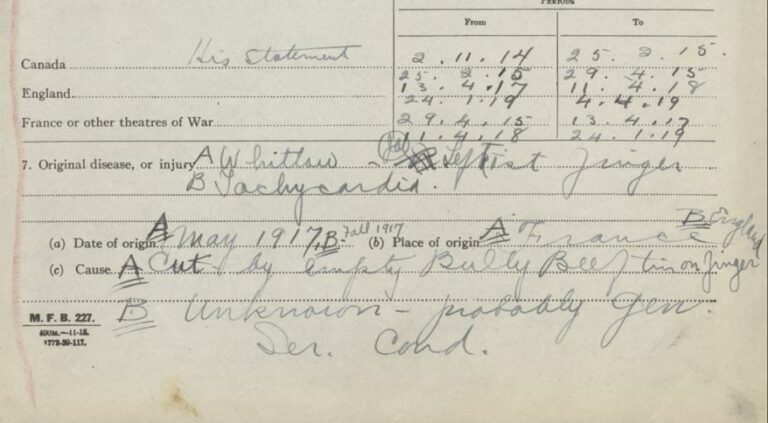 PERIODS
From To
Canada His statement 2.11.14 25.2.15.
25.2.15 29.4.15
England 13.4.17 11.4.18
24.1.19 4.4.19
France or other theatres of War 29.4.15 13.4.17
11.4.18 24.1.19
7. Original disease, or injury A Whitlow - Septist finger
B Tachycardia.
(a) Date of origin A May 1917, B- Fall 1917 (b) Place of origin A France B England
(c) Cause A Cut by empty Bully Beef tin on finger
B Unknown - probably Gen.
Ser. Cond.
M. F. B. 227.
400M.-11-18.
1772-39-117.